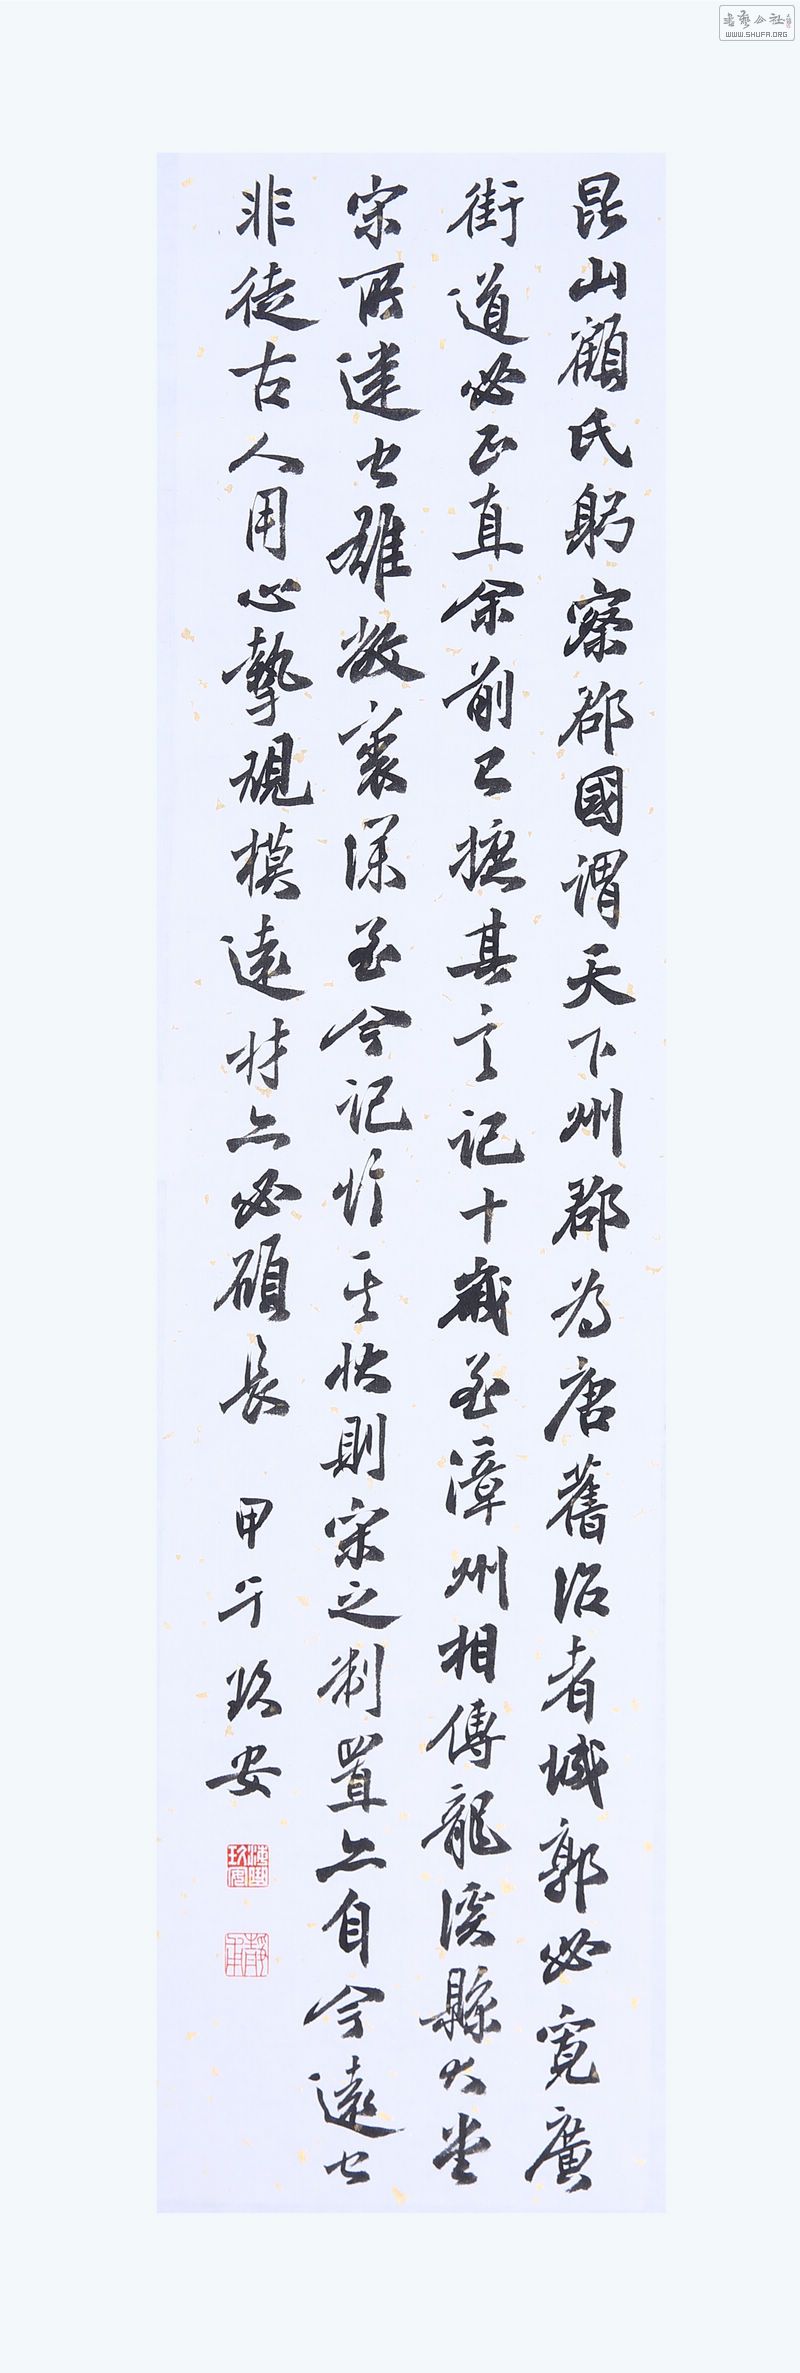 昆山顧氏躬察郡國謂天下州郡為唐舊治者城郭必寬廣
街道必正直余前已摭其言記十歲至漳州相傳龍溪縣大堂
宋所建也雖敝裹深至今記憶其怯則宋之制置亦自今遠也
非徒古人用心摯規模遠材亦必碩長 甲午玖安
書藝公社
WWW.SHUFA.ORG